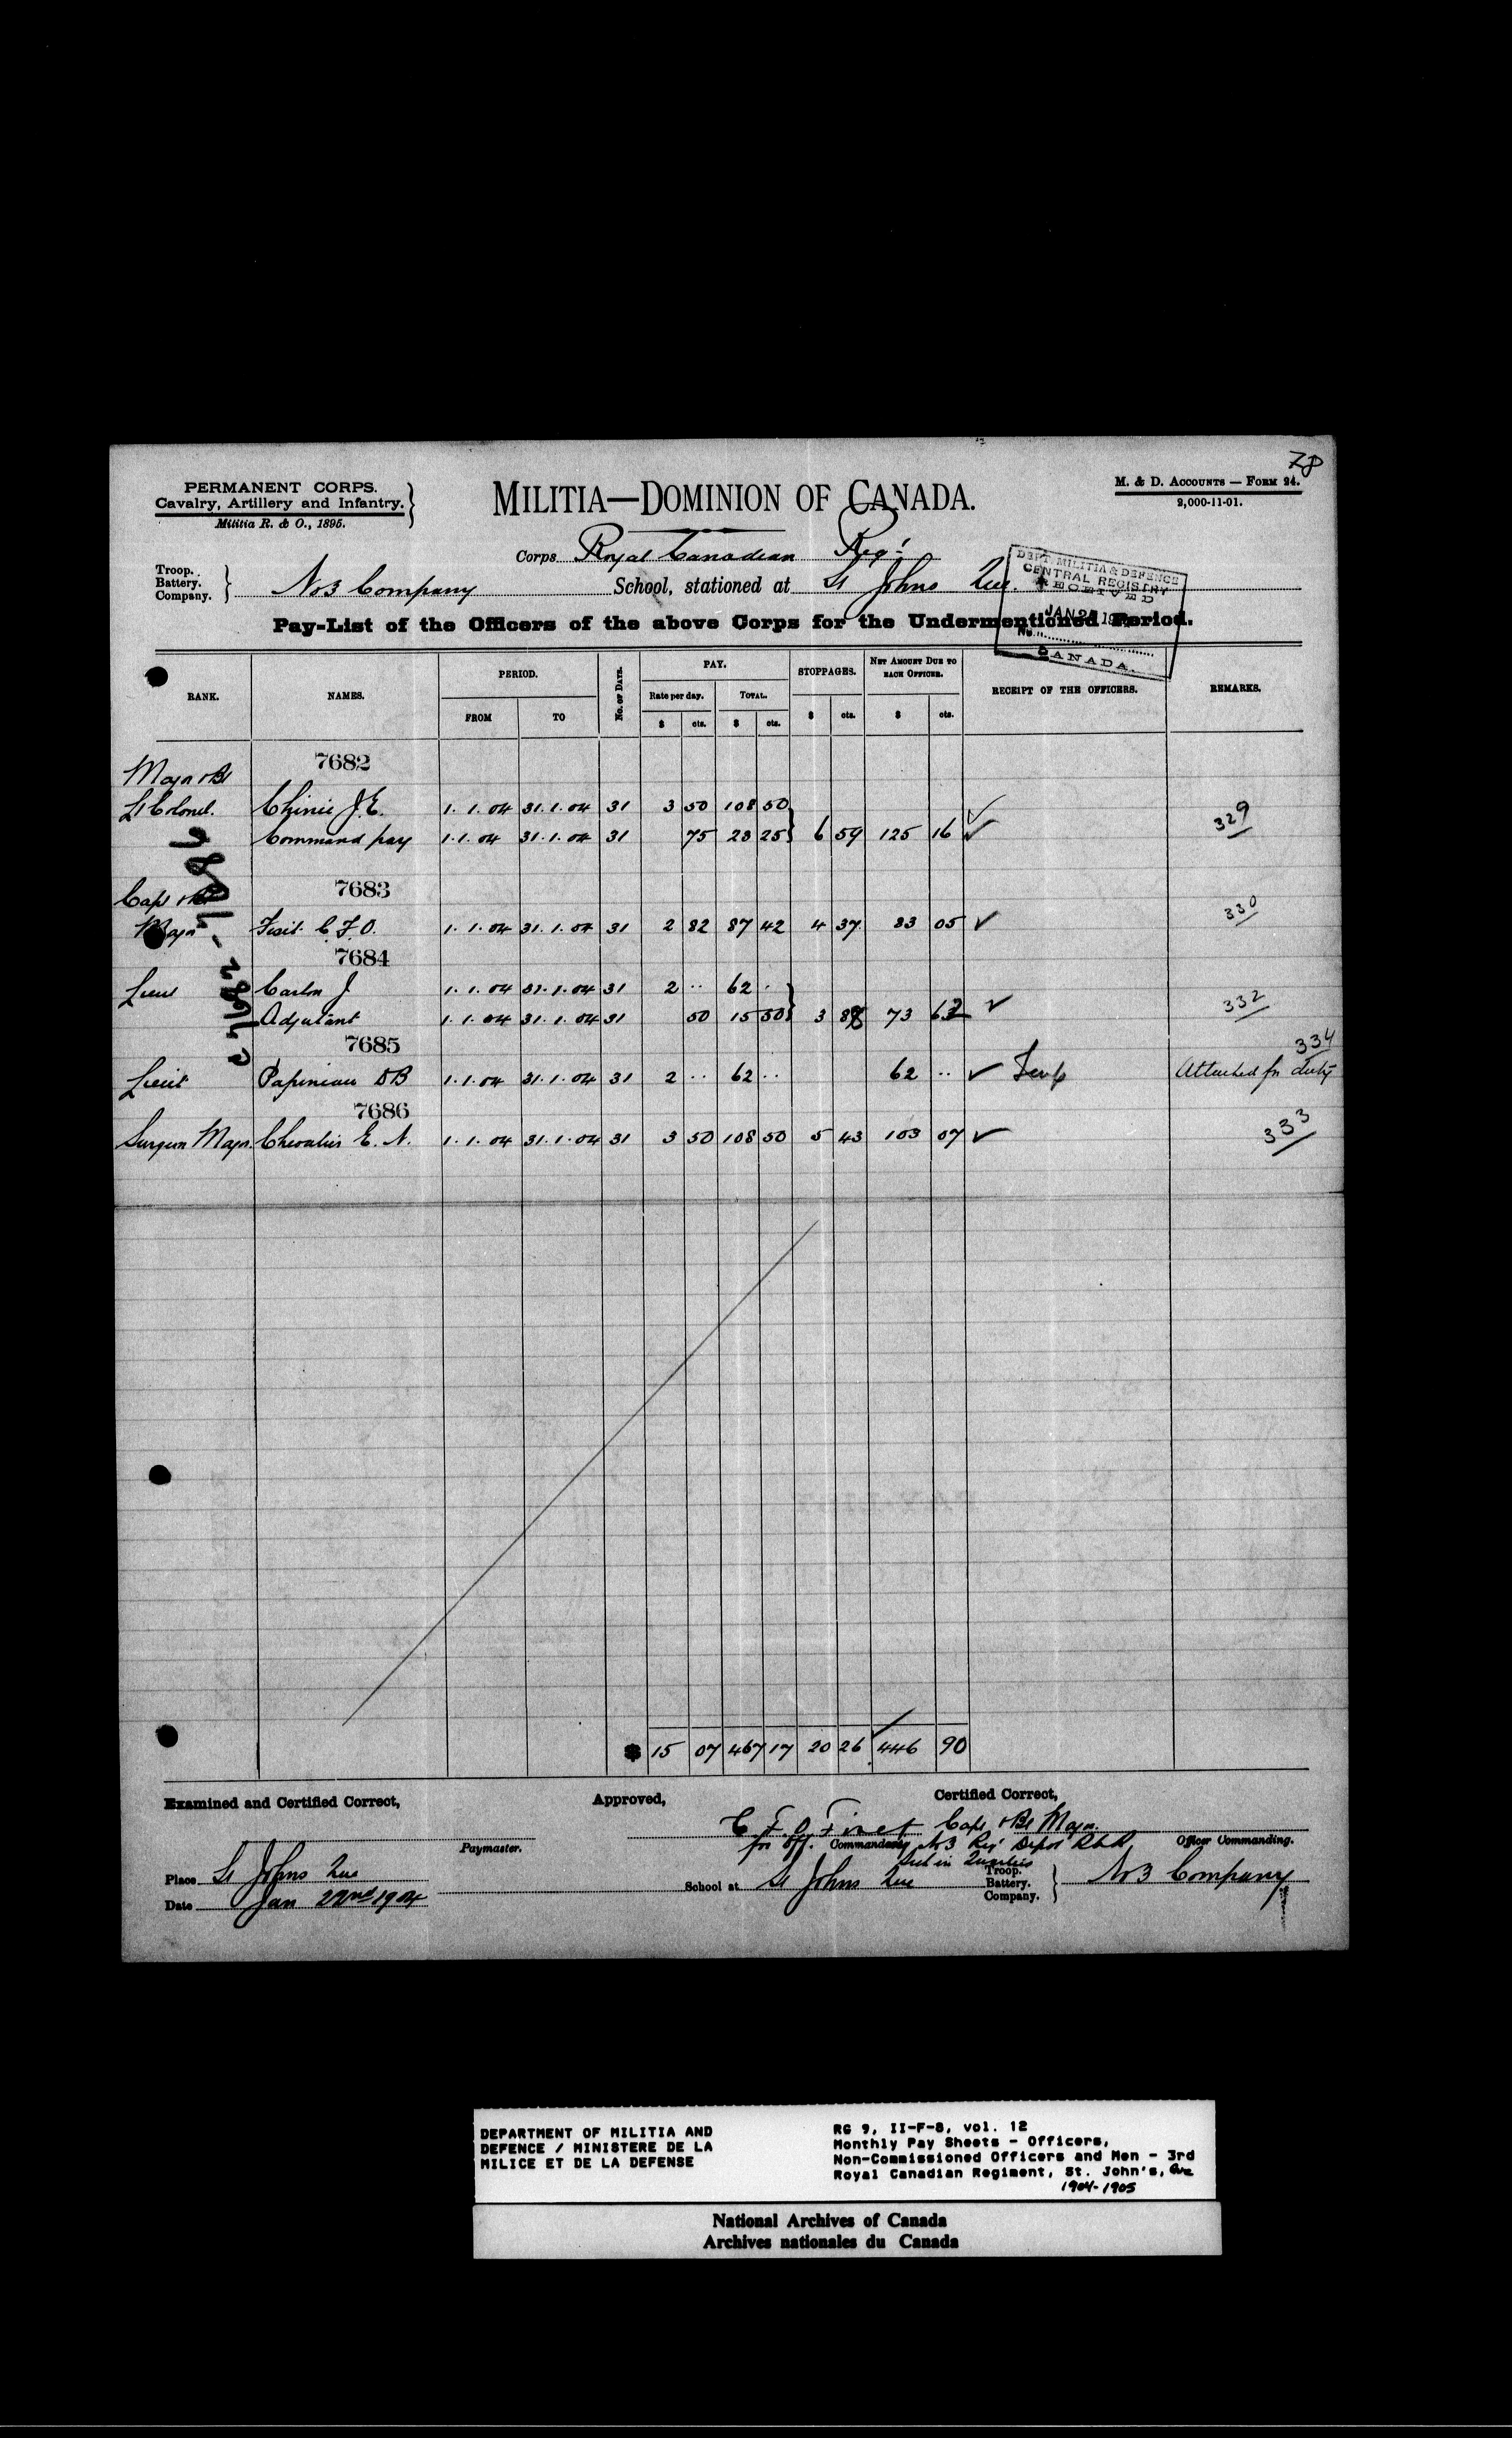 78
PERMANENT CORPS.
Cavalry, Artillery and Infantry.
Militia R. & O., 1895.
MILITIA—DOMINION OF CANADA.
M. & D. ACCOUNTS — FORM 24.
2,000-11-01.
Corps Royal Canadian Regt
Troop. Battery. Company. } No3 Company School, stationed at St Johns Que.
DEPT. MILITIA & DEFENCE
CENTRAL REGISTRY
RECEIVED
JAN 2 19
No.
CANADA.
Pay-List of the Officers of the above Corps for the Undermentioned Period.
RANK. NAMES. PERIOD. No. of Days. PAY. STOPPAGES. NET AMOUNT DUE TO EACH OFFICER. RECEIPT OF THE OFFICERS. REMARKS.
FROM TO Rate per day. TOTAL.
$ cts. $ cts. $ cts. $ cts.
7682
Major & Bt
Lt Colonel. Chinic J.E. 1.1.04 31.1.04 31 3 50 108 50
Command pay 1.1.04 31.1.04 31 75 23 25 } 6 59 125 16 ✓ 329
7683
Capt & Bt
Major Fiset C F O. 1.1.04 31.1.04 31 2 82 87 42 4 37 83 05 ✓ 330
7684
Lieut Carlon J 1.1.04 31.1.04 31 2 .. 62 .
Adjutant 1.1.04 31.1.04 31 50 15 50 } 3 88 73 62 ✓ 332
c 7682-7686
7685
334
Lieut Papineau DB 1.1.04 31.1.04 31 2 .. 62 .. 62 .. ✓ Temp Attached for duty
7686
Surgeon Major. Chevalier E. N. 1.1.04 31.1.04 31 3 50 108 50 5 43 103 07 ✓ 333
$ 15 07 467 17 20 26 446 90
Examined and Certified Correct, Approved, Certified Correct,
C. F. O. Fiset Capt & Bt Major.
Paymaster. for Off. Commanding No3 Reg Depot RCR Officer Commanding.
Place St Johns Que School at St Johns Que Troop. Battery. Company. } No3 Company
Date Jan 22nd 1904
DEPARTMENT OF MILITIA AND
DEFENCE / MINISTERE DE LA
MILICE ET DE LA DEFENSE
RG 9, II-F-8, vol. 12
Monthly Pay Sheets - Officers,
Non-Commissioned Officers and Men - 3rd
Royal Canadian Regiment, St. John's, Que
1904-1905
National Archives of Canada
Archives nationales du Canada